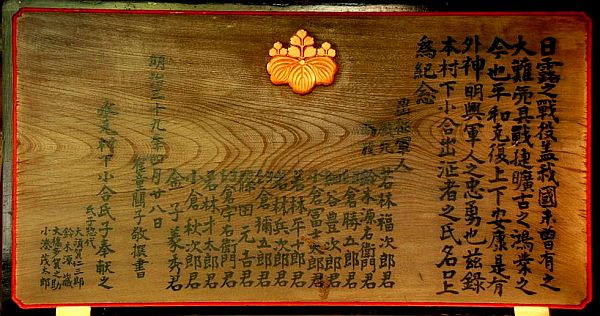 日露之戰役蓋我國未曽有之
大難而其戰捷曠古之鴻業之
今也平和克復上下安康是有
外神明與軍人之忠勇也茲録
本村下小合出征者之氏名以上
為紀念
出征軍人
戰死 若林福次郎君
鈴木源右衛門君
小倉勝五郎君
細谷豊次郎君
小倉冨士次郎君
若林年十郎君
若林兵次郎君
小倉彌五郎君
篠田元吉君
小倉宇右衛門君
若林才太郎君
小倉秋次郎君
金子義秀君
明治三十九年四月廿八日
催重關子敬撰書
永足村下小合氏子奉献之
氏子惣代
大須賀仁三郎
鈴木源藏
大須賀之助
小湊茂太郎